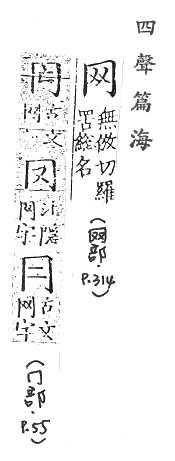 四聲篇海
网
無倣切羅
罟緫名
(网部.P.314)
古文
网
网字
古文
网字
(冂部.P.55)